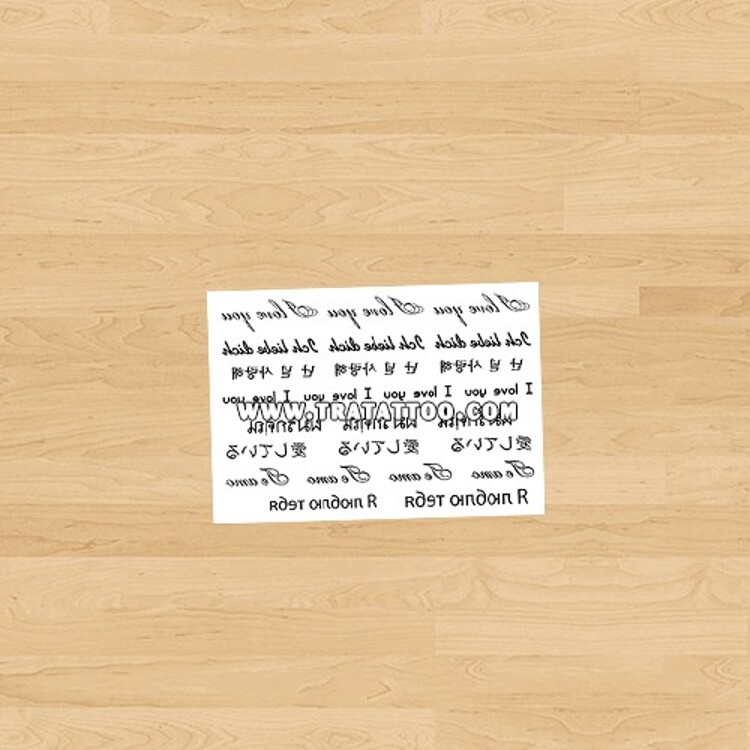 I love you I love you I love you
Ich liebe dich Ich liebe dich Ich liebe dich
난 널 사랑해 난 널 사랑해 난 널 사랑해
I love you I love you I love you I love you
WWW.TRATATTOO.COM
愛している 愛している 愛している
Te amo Te amo Te amo Te amo
Я люблю тебя Я люблю тебя